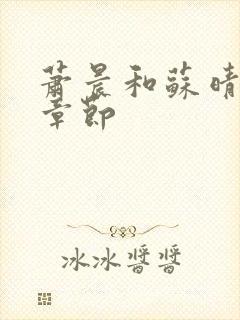 蕭晨和蘇晴
章節
冰冰醬醬